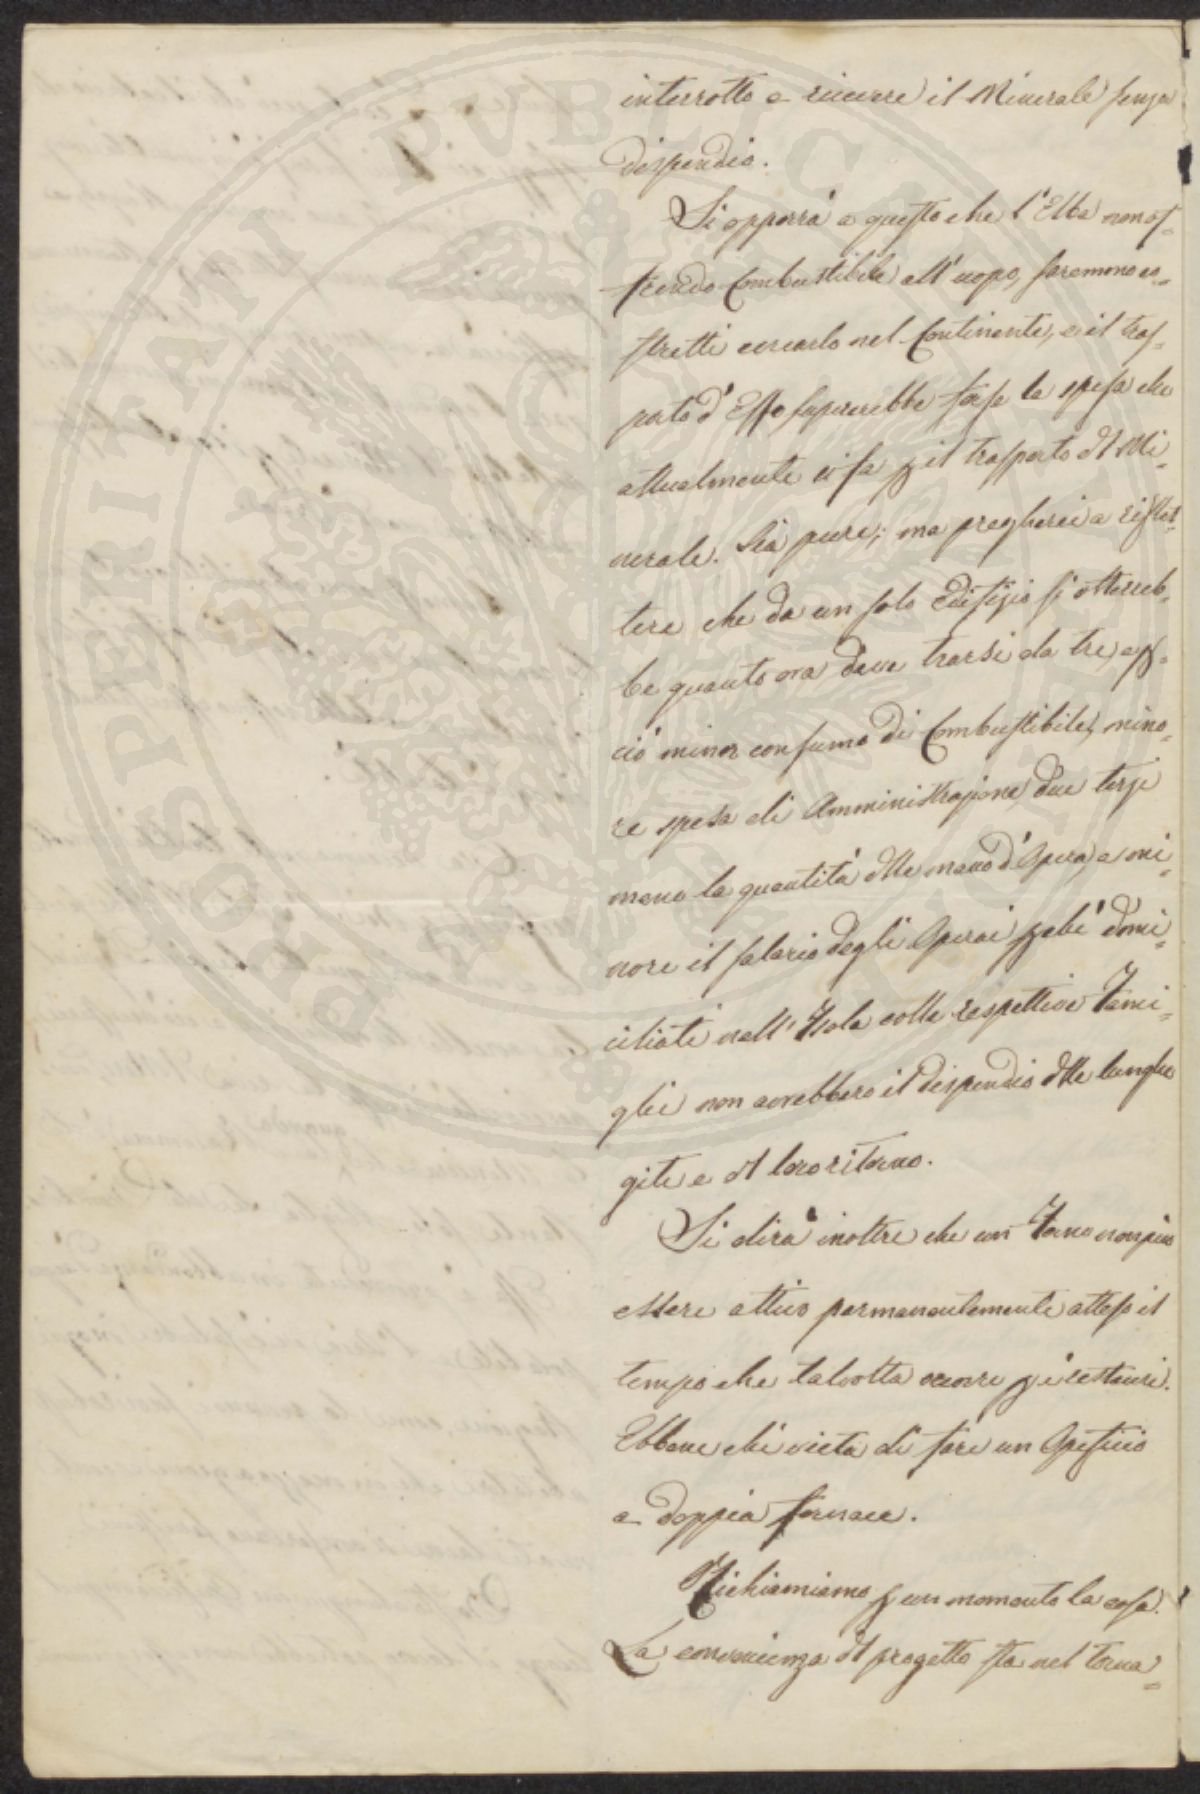 interrotto e ricevere il Minerale senza
dispendio.
Si opporrà a questo che l'Elba non of=
frendo Combustibile all'uopo, saremmo co=
stretti cercarlo nel Continente, e il tras=
porto d'Esso supererebbe forse la spesa che
attualmente si fa p il trasporto dl Mi=
nerale. Sia pure; ma pregherei a riflet=
tere che da un solo Edifizio si otterreb=
be quanto ora deve trarsi da tre, e p=
ciò minor consumo di Combustibile, mino=
re spesa di Amministrazione, due terzi
meno la quantità dlle mano d'Opera, e mi=
nore il salario degli Operai pchè domi=
ciliati nell'Isola colle respettive Fami=
glie non avrebbero il dispendio dlle lunghe
gite e dl loro ritorno.
Si dirà inoltre che un Forno non può
essere attivo permanentemente atteso il
tempo che talvolta occorre p i restauri.
Ebbene chi vieta di fare un Opificio
a doppia fornace.
Richiamiamo p un momento la cosa.
La convenienza dl progetto sta nel torna=
PROSPERITATI PVBLICAE